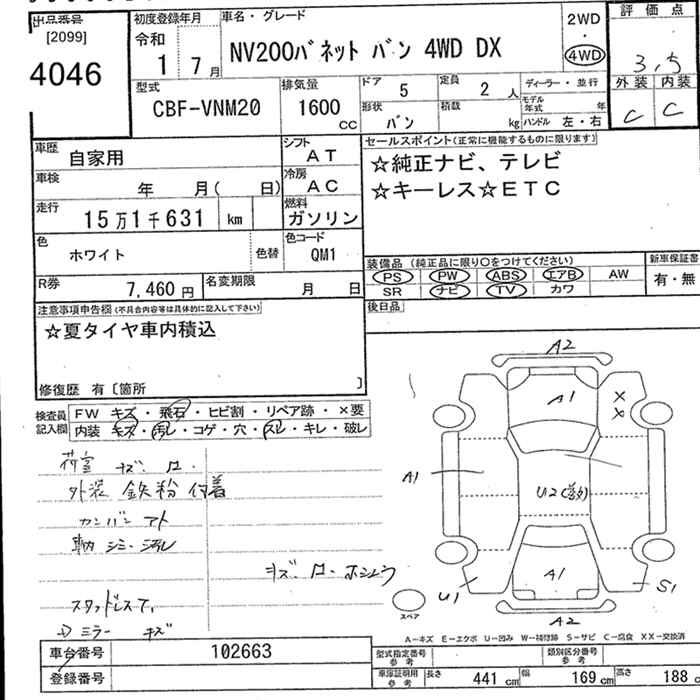 出品番号 初度登録年月 車名・グレード 2WD 評価点
[2099] 令和 ・
4046 1 7月 NV200バネット バン 4WD DX 4WD 3.5
型式 排気量 ドア 5 定員 2人 ディーラー・並行 外装 内装
CBF-VNM20 1600 cc 形状 バン 積載 kg モデル年式 年 C C
ハンドル 左・右
車歴 自家用 シフト AT セールスポイント(正常に機能するものに限ります)
車検 年 月( 日) 冷房 AC ☆純正ナビ、テレビ
走行 15万1千631 km 燃料 ガソリン ☆キーレス☆ETC
色 ホワイト 色替 色コード QM1
装備品 (純正品に限り○をつけてください) 新車保証書
R券 7,460円 名変期限 月 日 PS PW ABS エアB AW 有・無
SR ナビ TV カワ
注意事項申告欄(不具合内容等は具体的に記入して下さい) 後日品
☆夏タイヤ車内積込
修復歴 有〔箇所 〕
検査員記入欄 FW キズ・飛石・ヒビ割・リペア跡・×要
内装 キズ・汚レ・コゲ・穴・スレ・キレ・破レ
荷室 キズ.
外装 鉄粉 付着
カンバン アト
車内 シミ・汚レ
スタッドレスT.
ミラー キズ
A2
A1
X
X
A1
U2
A1
U1
S1
スペア
A2
A-キズ E-エクボ U-凹み W-補修跡 S-サビ C-腐食 XX-交換済
車台番号 102663 型式指定番号 参考 類別区分番号 参考
登録番号 車庫証明用 参考 長さ 441cm 幅 169cm 高さ 188cm